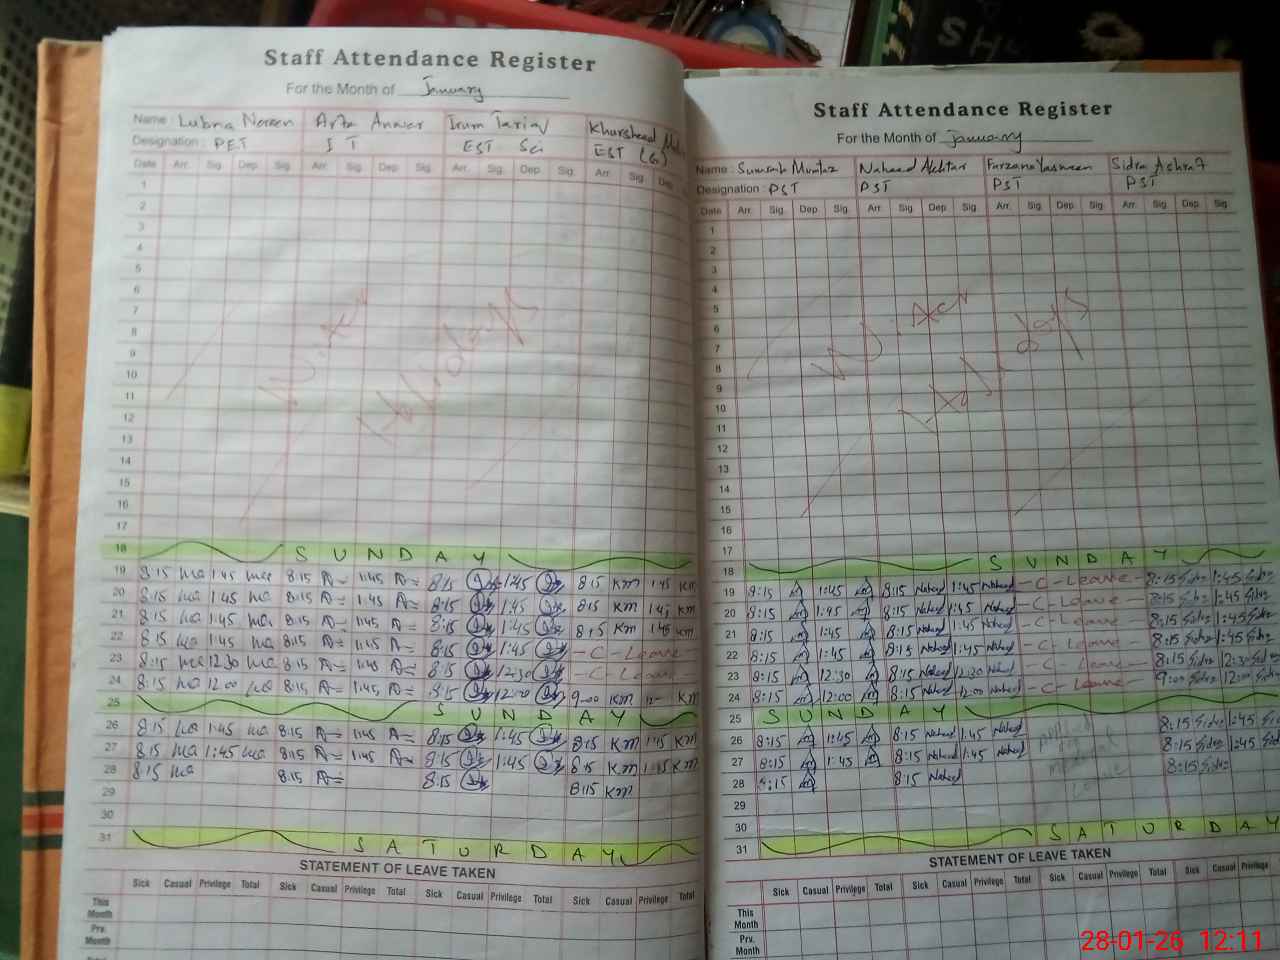 Staff Attendance Register
For the Month of January
Name : Lubna Noreen Arfa Anwar Irum Tariq Khursheed
Designation : PET I T EST Sci EST (G)
Date Arr. Sig. Dep. Sig. Arr. Sig. Dep. Sig. Arr. Sig. Dep. Sig. Arr. Sig. Dep.
1
2
3
4
5
6
7
8
9
10
11
12
13
14
15
16
17
Winter
Holidays
18 SUNDAY
19 8:15 1:45 8:15 1:45 8:15 1:45 8:15 KM 1:45 KM
20 8:15 1:45 8:15 1:45 8:15 1:45 8:15 KM 1:45 KM
21 8:15 1:45 8:15 1:45 8:15 1:45 8:15 KM 1:45 KM
22 8:15 1:45 8:15 1:45 8:15 1:45 - C - Leave -
23 8:15 12:30 8:15 1:45 8:15 12:30 - C - Leave -
24 8:15 12:00 8:15 1:45 8:15 12:00 9:00 KM KM
25 SUNDAY
26 8:15 1:45 8:15 1:45 8:15 1:45 8:15 KM 1:45 KM
27 8:15 1:45 8:15 1:45 8:15 1:45 8:15 KM 1:45 KM
28 8:15 8:15 8:15 8:15 KM
29
30
31 SATURDAY
STATEMENT OF LEAVE TAKEN
Sick Casual Privilege Total Sick Casual Privilege Total Sick Casual Privilege Total Sick Casual Privilege Total
This Month
Prv. Month
Staff Attendance Register
For the Month of January
Name : Mumtaz Naheed Akhtar Farzana Yasmeen Sidra Ashraf
Designation : PST PST PST PST
Date Arr. Sig. Dep. Sig. Arr. Sig. Dep. Sig. Arr. Sig. Dep. Sig. Arr. Sig. Dep. Sig.
1
2
3
4
5
6
7
8
9
10
11
12
13
14
15
16
17
Winter
Holidays
18 SUNDAY
19 8:15 1:45 8:15 Naheed 1:45 Naheed - C - Leave - 8:15 Sidra 1:45 Sidra
20 8:15 1:45 8:15 Naheed 1:45 Naheed - C - Leave - 8:15 Sidra 1:45 Sidra
21 8:15 1:45 8:15 Naheed 1:45 Naheed - C - Leave - 8:15 Sidra 1:45 Sidra
22 8:15 1:45 8:15 Naheed 1:45 Naheed - C - Leave - 8:15 Sidra 1:45 Sidra
23 8:15 12:30 8:15 Naheed 12:30 Naheed - C - Leave - 8:15 Sidra 12:30 Sidra
24 8:15 12:00 8:15 Naheed 12:00 Naheed - C - Leave - 9:00 Sidra 12:00 Sidra
25 SUNDAY
26 8:15 1:45 8:15 Naheed 1:45 Naheed 8:15 Sidra 1:45 Sidra
27 8:15 1:45 8:15 Naheed 1:45 Naheed 8:15 Sidra 1:45 Sidra
28 8:15 8:15 Naheed 8:15 Sidra
Applied for Medical Leave
29
30
31 SATURDAY
STATEMENT OF LEAVE TAKEN
Sick Casual Privilege Total Sick Casual Privilege Total Sick Casual Privilege Total Sick Casual Privilege
This Month
Prv. Month
28-01-26 12:11